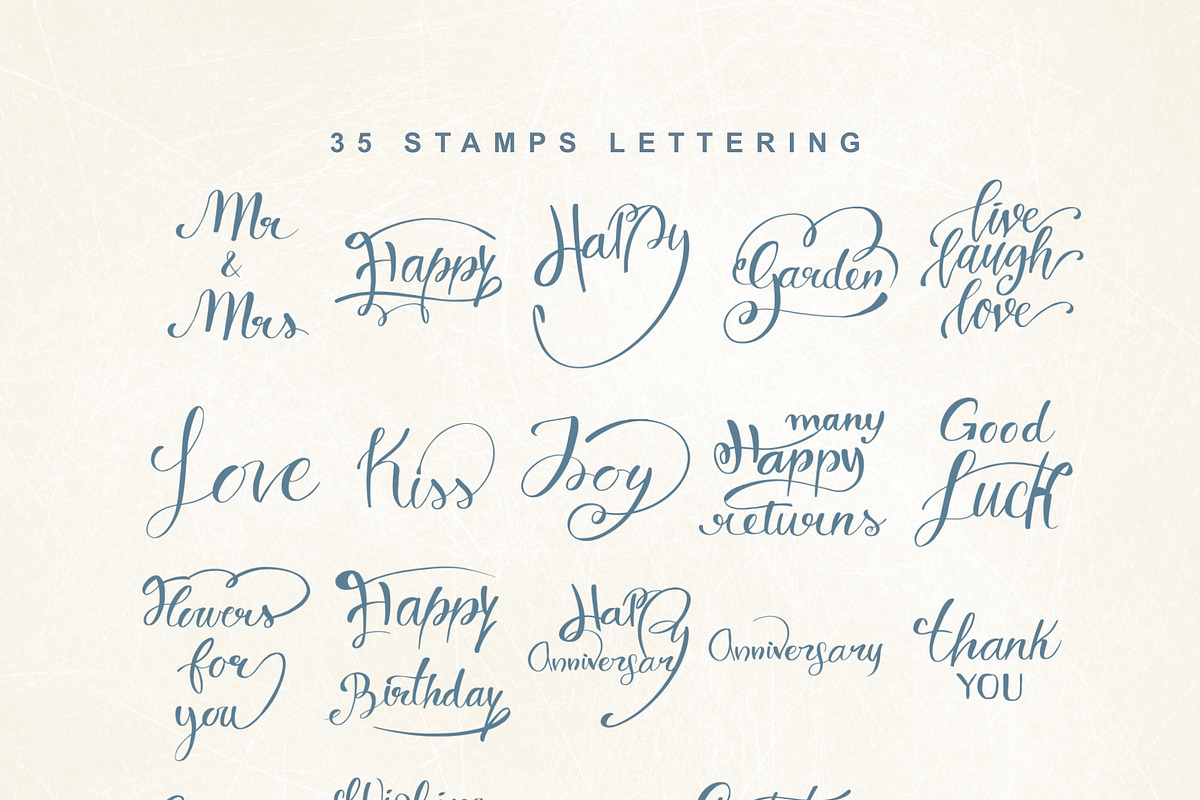 35 STAMPS LETTERING
Mr
&
Mrs
Happy
Happy
Garden
live
laugh
love
Love
Kiss
Joy
many
Happy
returns
Good
Luck
Flowers
for
you
Happy
Birthday
Happy
Anniversary
Anniversary
thank
YOU